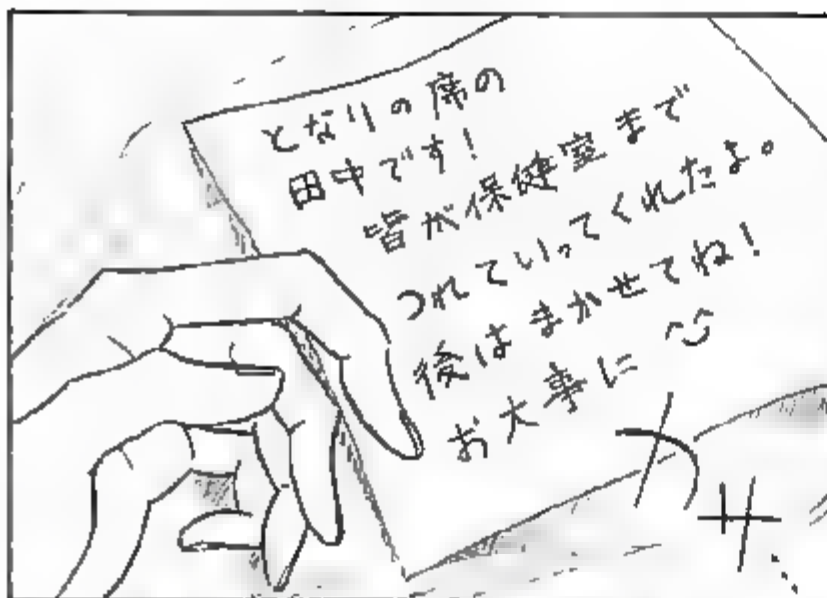 となりの席の
田中です！
皆が保健室まで
つれていってくれたよ。
後はまかせてね！
お大事に
カサ…